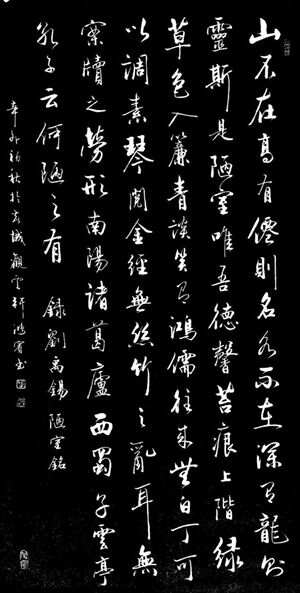 山不在高有僊則名水不在深有龍則
靈斯是陋室唯吾德馨苔痕上階緑
草色入簾青談笑有鴻儒往來無白丁可
以調素琴閱金經無絲竹之亂耳無
案牘之勞形南陽諸葛廬西蜀子雲亭
孔子云何陋之有 録劉禹錫陋室銘
辛卯初秋於城觀雲軒鴻賓書